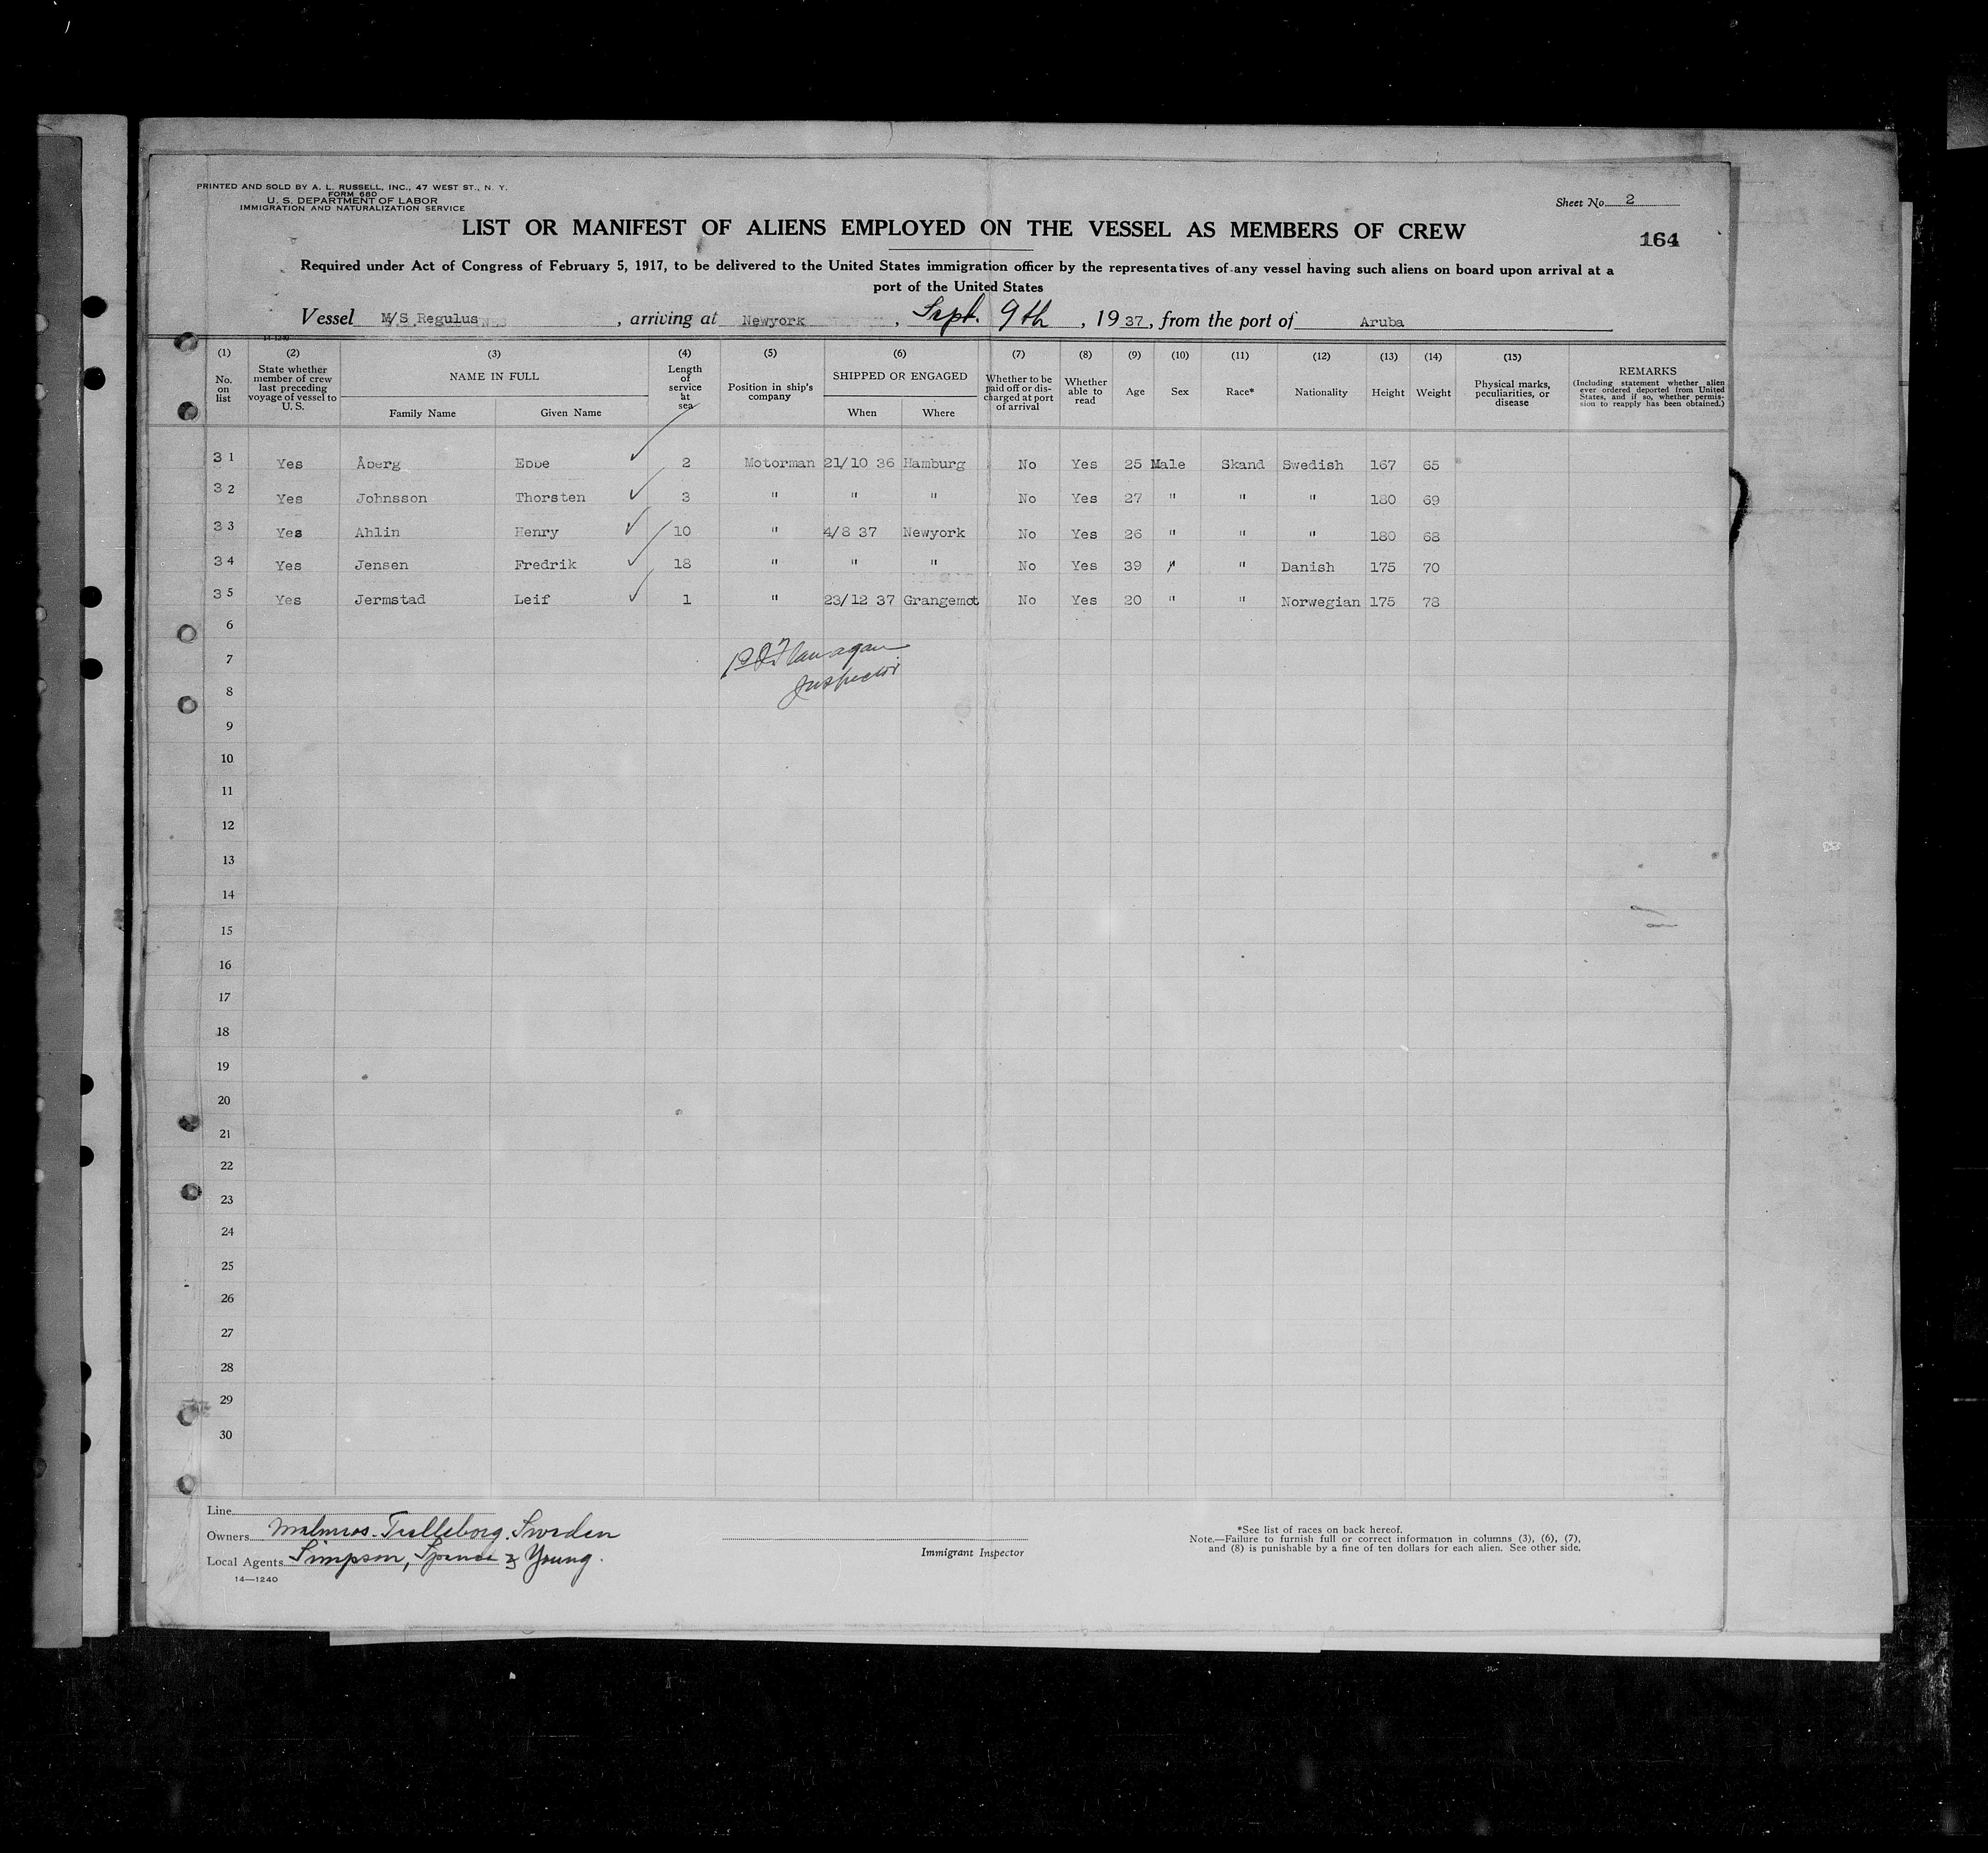 PRINTED AND SOLD BY A. L. RUSSELL, INC., 47 WEST ST., N. Y.
FORM 680
U. S. DEPARTMENT OF LABOR
IMMIGRATION AND NATURALIZATION SERVICE
Sheet No. 2
LIST OR MANIFEST OF ALIENS EMPLOYED ON THE VESSEL AS MEMBERS OF CREW
164
Required under Act of Congress of February 5, 1917, to be delivered to the United States immigration officer by the representatives of any vessel having such aliens on board upon arrival at a
port of the United States
Vessel M/S Regulus, arriving at Newyork, Sept. 9th, 1937, from the port of Aruba
14-1240
(1) (2) (3) (4) (5) (6) (7) (8) (9) (10) (11) (12) (13) (14) (15)
No. on list
State whether member of crew last preceding voyage of vessel to U. S.
NAME IN FULL
Family Name Given Name
Length of service at sea
Position in ship's company
SHIPPED OR ENGAGED
When Where
Whether to be paid off or discharged at port of arrival
Whether able to read
Age Sex Race* Nationality Height Weight
Physical marks, peculiarities, or disease
REMARKS
(Including statement whether alien ever ordered deported from United States, and if so, whether permission to reapply has been obtained.)
31 Yes Åberg Ebbe 2 Motorman 21/10 36 Hamburg No Yes 25 Male Skand Swedish 167 65
32 Yes Johnsson Thorsten 3 " " " No Yes 27 " " " 180 69
33 Yes Ahlin Henry 10 " 4/8 37 Newyork No Yes 26 " " " 180 68
34 Yes Jensen Fredrik 18 " " " No Yes 39 " " Danish 175 70
35 Yes Jermstad Leif 1 " 23/12 37 Grangemot No Yes 20 " " Norwegian 175 78
6
7 Flanagan
8 Inspector
9
10
11
12
13
14
15
16
17
18
19
20
21
22
23
24
25
26
27
28
29
30
Line
Owners Malmros. Trelleborg. Sweden
Local Agents Simpson, Spence & Young.
14—1240
Immigrant Inspector
*See list of races on back hereof.
Note.—Failure to furnish full or correct information in columns (3), (6), (7),
and (8) is punishable by a fine of ten dollars for each alien. See other side.